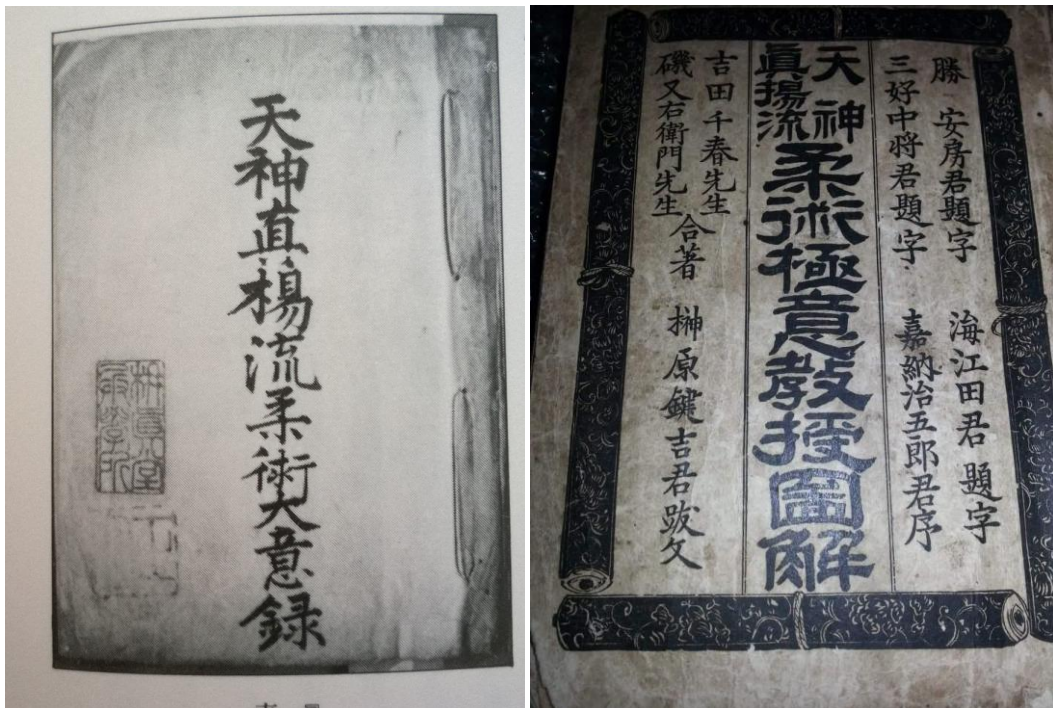 天神真楊流柔術大意録
勝 安房君題字 海江田君題字
三好中将君題字 嘉納治五郎君序
天神
眞揚流
柔術極意教授圖解
吉田千春先生
磯又右衛門先生
合著 榊原鍵吉君跋文